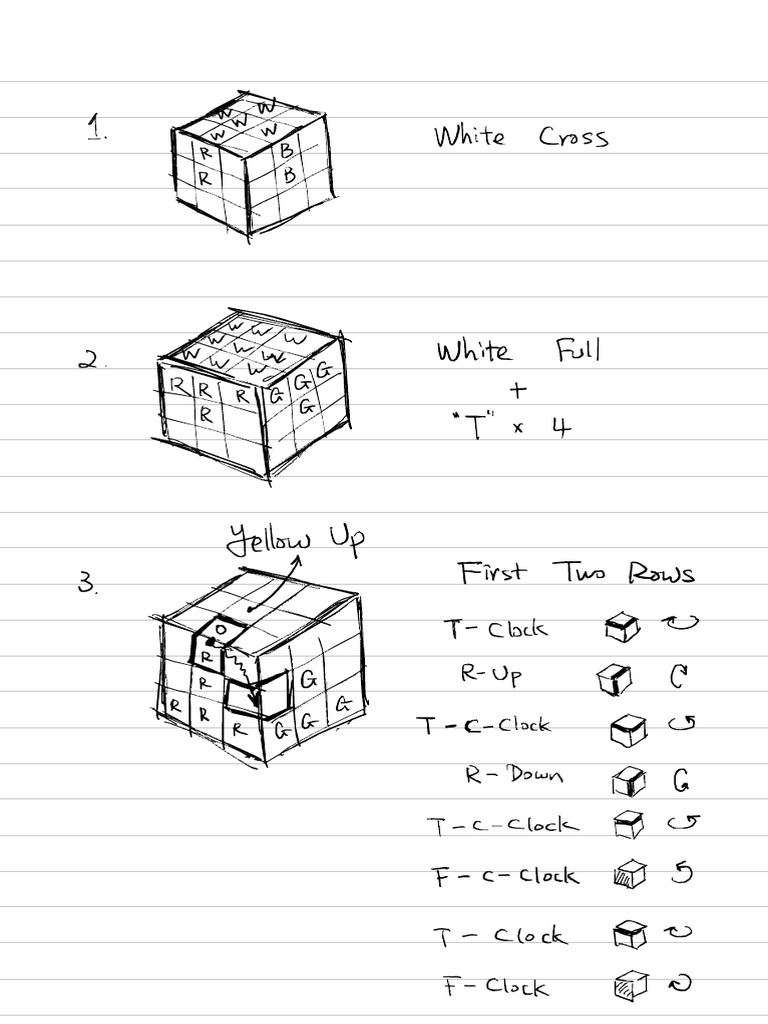 1.
W W
W
W W
R B
R B
White Cross
2.
W W W
W W W
W W W
R R R G G G
R G
White Full
+
"T" x 4
Yellow Up
3.
O
R
R G
R R R G G G
First Two Rows
T-Clock
R-Up
T-C-Clock
R-Down
T-C-Clock
F-C-Clock
T-Clock
F-Clock